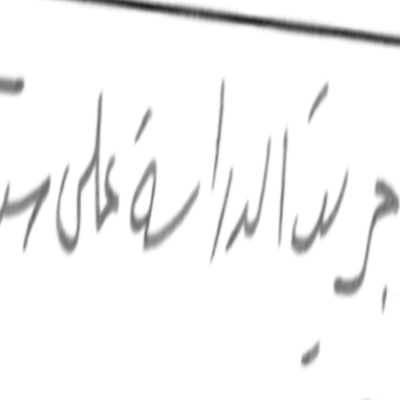 جريت الدراسة على